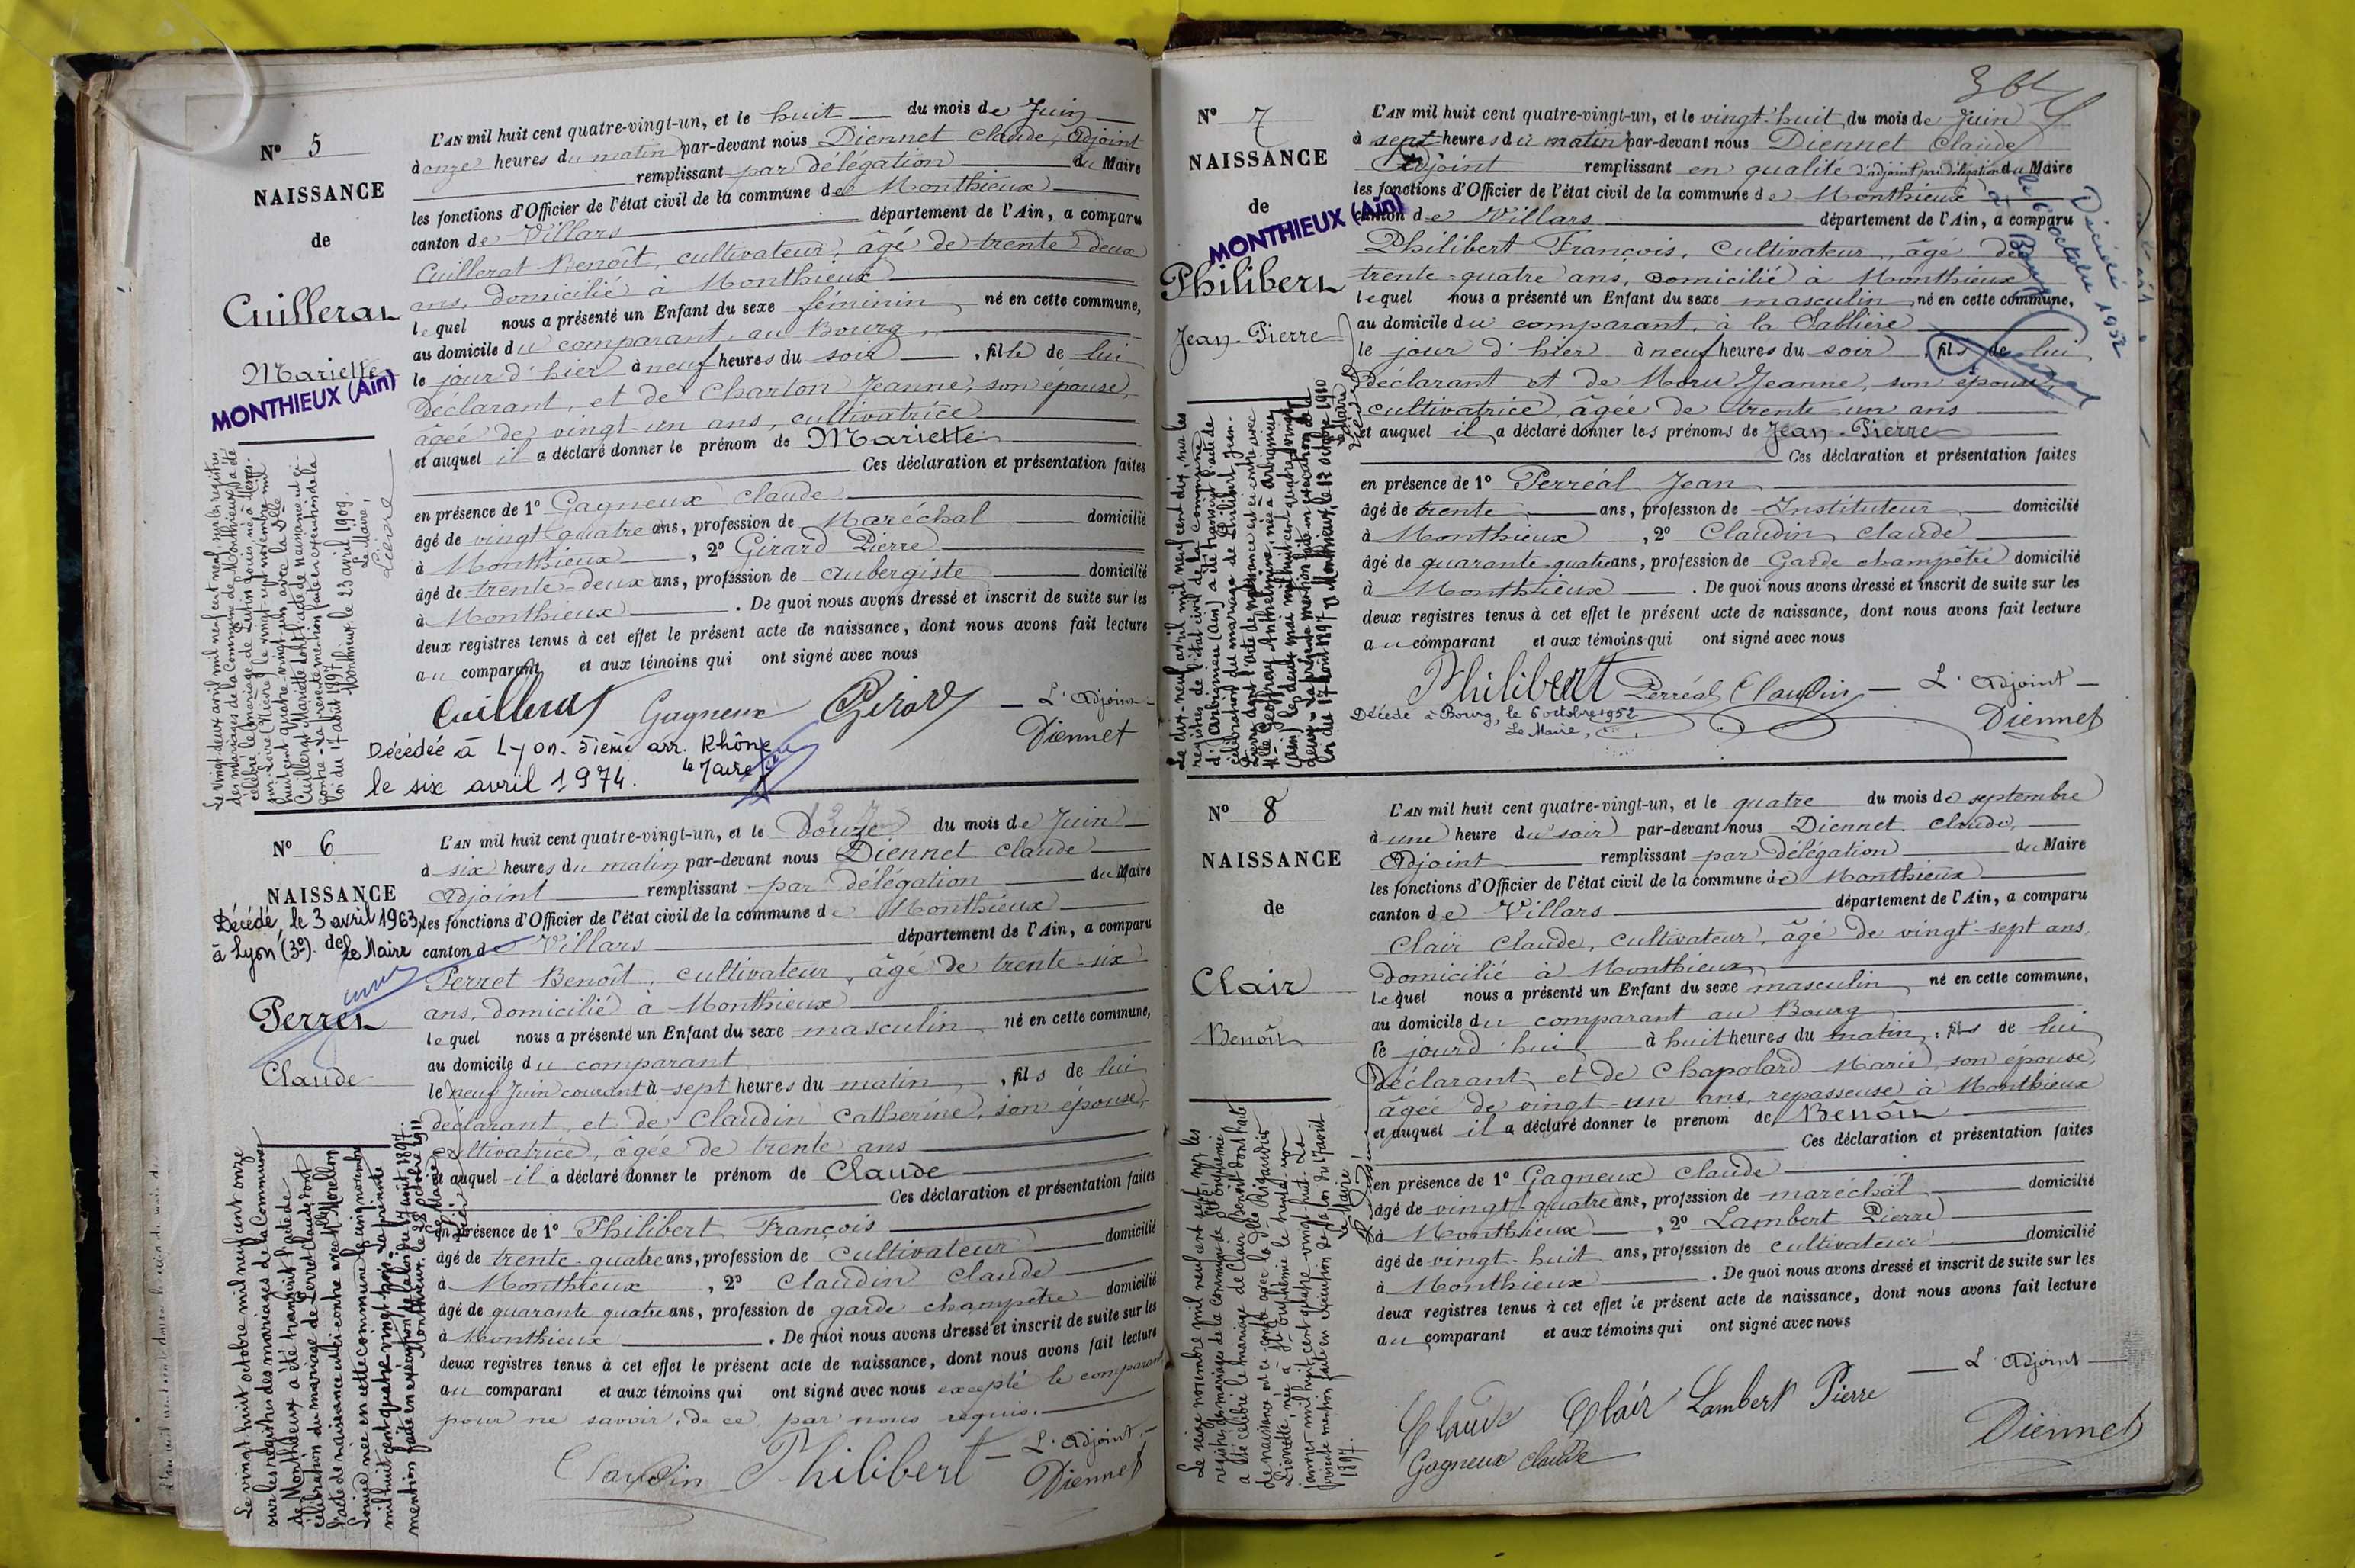 Nº 5
NAISSANCE
de
Cuillerat
Mariette
MONTHIEUX (Ain)
L'AN mil huit cent quatre-vingt-un, et le huit du mois de Juin
à onze heures du matin par-devant nous Diennet Claude, Adjoint
remplissant par délégation du Maire
les fonctions d'Officier de l'état civil de la commune de Monthieux
canton de Villars département de l'Ain, a comparu
Cuillerat Benoît, cultivateur, âgé de trente deux
ans, domicilié à Monthieux
lequel nous a présenté un Enfant du sexe féminin né en cette commune,
au domicile du comparant, au Bourg,
le jour d'hier à neuf heures du soir, fille de lui
déclarant, et de Charton Jeanne, son épouse,
âgée de vingt-un ans, cultivatrice
et auquel il a déclaré donner le prénom de Mariette
Ces déclaration et présentation faites
en présence de 1º Gagneux Claude
âgé de vingt quatre ans, profession de Maréchal domicilié
à Monthieux, 2º Girard Pierre
âgé de trente-deux ans, profession de aubergiste domicilié
à Monthieux. De quoi nous avons dressé et inscrit de suite sur les
deux registres tenus à cet effet le présent acte de naissance, dont nous avons fait lecture
au comparant et aux témoins qui ont signé avec nous
Cuillerat Gagneux Girard L'Adjoint
Diennet
Décédée à Lyon. 5ième arr. Rhône
le six avril 1974. le Maire
Le vingt-deux avril mil neuf cent neuf, sur les registres
des mariages de la Commune de Monthieux, a été
célébré le mariage de
huit cent quatre-vingt-un avec la dlle
Cuillerat Mariette dont l'acte de naissance est ci-
contre. La présente mention faite en exécution de la
loi du 17 août 1897.
Monthieux, le 23 avril 1909.
Le Maire,
Nº 6
NAISSANCE
Décédé, le 3 avril 1963,
à Lyon (3º). de
Le Maire
Perret
Claude
L'AN mil huit cent quatre-vingt-un, et le douze du mois de Juin
à six heures du matin par-devant nous Diennet Claude
Adjoint remplissant par délégation du Maire
les fonctions d'Officier de l'état civil de la commune de Monthieux
canton de Villars département de l'Ain, a comparu
Perret Benoît, cultivateur, âgé de trente-six
ans, domicilié à Monthieux
lequel nous a présenté un Enfant du sexe masculin né en cette commune,
au domicile du comparant
le neuf Juin courant à sept heures du matin, fils de lui
déclarant et de Claudin Catherine, son épouse,
cultivatrice, âgée de trente ans
et auquel il a déclaré donner le prénom de Claude
Ces déclaration et présentation faites
en présence de 1º Philibert François
âgé de trente-quatre ans, profession de cultivateur domicilié
à Monthieux, 2º Claudin Claude
âgé de quarante quatre ans, profession de garde champêtre domicilié
à Monthieux. De quoi nous avons dressé et inscrit de suite sur les
deux registres tenus à cet effet le présent acte de naissance, dont nous avons fait lecture
au comparant et aux témoins qui ont signé avec nous excepté le comparant
pour ne savoir, de ce par nous requis.
Claudin Philibert L'Adjoint
Diennet
Le vingt huit octobre mil neuf cent onze
sur les registres des mariages de la Commune
de Monthieux a été transcrit l'acte de
célébration du mariage de Perret Claude dont
l'acte de naissance est ci-contre avec Mlle Morellon
Louise née en cette commune le cinq novembre
mil huit cent quatre-vingt-trois. La présente
mention faite en exécution de la loi du 17 août 1897.
Monthieux, le 28 octobre 1911
Le Maire
Nº 7
NAISSANCE
de
MONTHIEUX (Ain)
Philibert
Jean-Pierre
L'AN mil huit cent quatre-vingt-un, et le vingt-huit du mois de Juin
à sept heures du matin par-devant nous Diennet Claude
Adjoint remplissant en qualité d'adjoint par délégation du Maire
les fonctions d'Officier de l'état civil de la commune de Monthieux
canton de Villars département de l'Ain, a comparu
Philibert François, Cultivateur, âgé de
trente-quatre ans, domicilié à Monthieux
lequel nous a présenté un Enfant du sexe masculin né en cette commune,
au domicile du comparant, à la Sablière
le jour d'hier à neuf heures du soir, fils de lui
déclarant et de Moru Jeanne, son épouse,
cultivatrice, âgée de trente-un ans
et auquel il a déclaré donner les prénoms de Jean-Pierre
Ces déclaration et présentation faites
en présence de 1º Perréal Jean
âgé de trente ans, profession de Instituteur domicilié
à Monthieux, 2º Claudin Claude
âgé de quarante-quatre ans, profession de Garde champêtre domicilié
à Monthieux. De quoi nous avons dressé et inscrit de suite sur les
deux registres tenus à cet effet le présent acte de naissance, dont nous avons fait lecture
au comparant et aux témoins qui ont signé avec nous
Philibert Perréal Claudin L'Adjoint
Diennet
Décédé à Bourg, le 6 octobre 1952.
Le Maire,
Décédé
à Bourg
le 6 octobre 1952
Le dix neuf avril mil neuf cent dix, sur les
registres de l'état civil de la commune
d'Arbigneu (Ain) a été transcrit l'acte de
célébration du mariage de Philibert Jean-
Pierre dont l'acte de naissance est ci-contre avec
Mlle Geoffray Anthelmine, née à Arbigneu
(Ain) le deux mai mil huit cent quatre vingt
deux. La présente mention faite en exécution de la
loi du 17 août 1897. Monthieux, le 12 octobre 1910
Le Maire
Nº 8
NAISSANCE
de
Clair
Benoît
L'AN mil huit cent quatre-vingt-un, et le quatre du mois de septembre
à une heure du soir par-devant nous Diennet Claude,
Adjoint remplissant par délégation du Maire
les fonctions d'Officier de l'état civil de la commune de Monthieux
canton de Villars département de l'Ain, a comparu
Clair Claude, cultivateur, âgé de vingt-sept ans,
domicilié à Monthieux
lequel nous a présenté un Enfant du sexe masculin né en cette commune,
au domicile du comparant au Bourg
le jourd'hui à huit heures du matin, fils de lui
déclarant et de Chapolard Marie, son épouse,
âgée de vingt-un ans, repasseuse à Monthieux
et auquel il a déclaré donner le prénom de Benoît
Ces déclaration et présentation faites
en présence de 1º Gagneux Claude
âgé de vingt-quatre ans, profession de maréchal domicilié
à Monthieux, 2º Lambert Pierre
âgé de vingt-huit ans, profession de cultivateur domicilié
à Monthieux. De quoi nous avons dressé et inscrit de suite sur les
deux registres tenus à cet effet le présent acte de naissance, dont nous avons fait lecture
au comparant et aux témoins qui ont signé avec nous
L'Adjoint
Claude Clair Lambert Pierre
Gagneux Claude
Diennet
Le seize novembre mil neuf cent sept, sur les
registres de mariages de la Commune de Ste Euphémie
a été célébré le mariage de Clair Benoît dont l'acte
de naissance est ci-contre avec la dlle Rigaudier
née à Ste Euphémie le trente-un
janvier mil huit cent quatre-vingt-huit. La
présente mention faite en exécution de la loi du 17 août
1897.
Le Maire